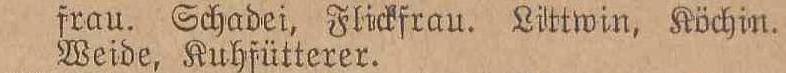 frau. Schadei, Flickfrau. Littwin, Köchin.
Weide, Kuhfütterer.